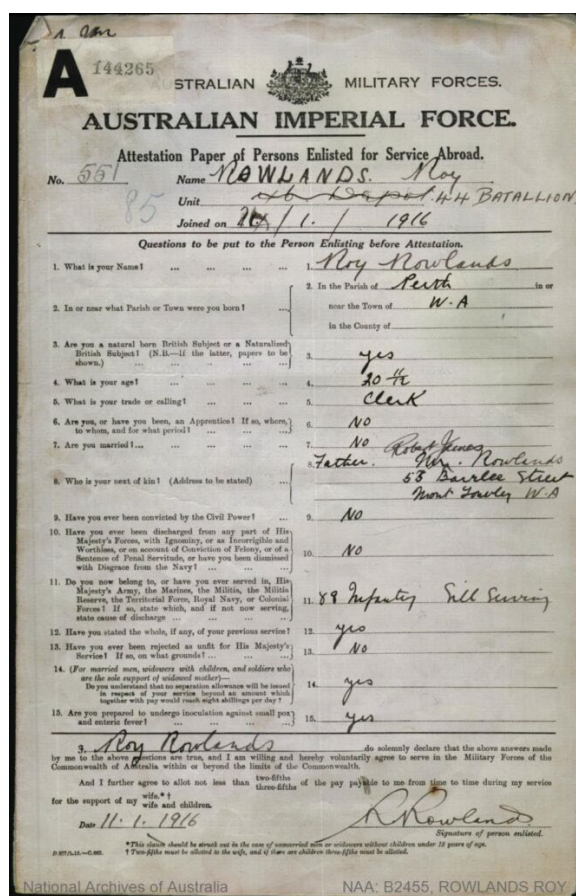 A 144265
AUSTRALIAN MILITARY FORCES.
AUSTRALIAN IMPERIAL FORCE.
Attestation Paper of Persons Enlisted for Service Abroad.
No. 551 Name ROWLANDS. Roy
85 Unit Depot 44 BATALLION
Joined on /1./ 1916
Questions to be put to the Person Enlisting before Attestation.
1. What is your Name? ... ... ... ... 1. Roy Rowlands
2. In or near what Parish or Town were you born? ... 2. In the Parish of Perth in or
near the Town of W.A
in the County of
3. Are you a natural born British Subject or a Naturalized
British Subject? (N.B.—If the latter, papers to be
shown.) ... ... ... ... 3. yes
4. What is your age? ... ... ... ... 4. 20 11/12
5. What is your trade or calling? ... ... ... 5. Clerk
6. Are you, or have you been, an Apprentice? If so, where,
to whom, and for what period? ... ... ... 6. NO
7. Are you married?... ... ... ... ... 7. NO
8. Who is your next of kin? (Address to be stated) ... 8. Father. Robert James
Mr. Rowlands
53 Barlee Street
Mont Lawley W.A
9. Have you ever been convicted by the Civil Power? ... 9. NO
10. Have you ever been discharged from any part of His
Majesty's Forces, with Ignominy, or as Incorrigible and
Worthless, or on account of Conviction of Felony, or of a
Sentence of Penal Servitude, or have you been dismissed
with Disgrace from the Navy? ... ... ... 10. NO
11. Do you now belong to, or have you ever served in, His
Majesty's Army, the Marines, the Militia, the Militia
Reserve, the Territorial Force, Royal Navy, or Colonial
Forces? If so, state which, and if not now serving,
state cause of discharge ... ... ... 11. 88 Infantry Still Serving
12. Have you stated the whole, if any, of your previous service? 12. yes
13. Have you ever been rejected as unfit for His Majesty's
Service? If so, on what grounds? ... ... ... 13. NO
14. (For married men, widowers with children, and soldiers who
are the sole support of widowed mother)—
Do you understand that no separation allowance will be issued
in respect of your service beyond an amount which
together with pay would reach eight shillings per day? 14. yes
15. Are you prepared to undergo inoculation against small pox
and enteric fever? ... ... ... ... 15. yes
I, Roy Rowlands do solemnly declare that the above answers made
by me to the above questions are true, and I am willing and hereby voluntarily agree to serve in the Military Forces of the
Commonwealth of Australia within or beyond the limits of the Commonwealth.
And I further agree to allot not less than two-fifths three-fifths of the pay payable to me from time to time during my service
for the support of my wife.*† wife and children.
Date 11.1.1916 R Rowlands
Signature of person enlisted.
*This clause should be struck out in the case of unmarried men or widowers without children under 18 years of age.
† Two-fifths must be allotted to the wife, and if there are children three-fifths must be allotted.
National Archives of Australia NAA: B2455, ROWLANDS ROY